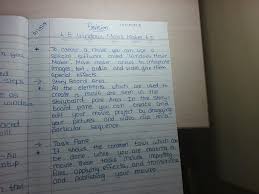 Revision
4.5 Windows Movie Maker 4.5
→ To create a movie you can use a
special software called Windows Movie
Maker. Movie maker allows to integrate
images, text, audio and video give them
special effects.
→ Story Board area
→ All the elements which are used to
create a movie are seen in the
storyboard pane area. In the story
board pane you can create and
edit your movie project by dragging
your pictures and video clips into
particular sequence.
→ Task Pane
It shows the common task which can
be done while you are making a
movie these task include importing
files, applying effects, and transitions
and publishing your movies